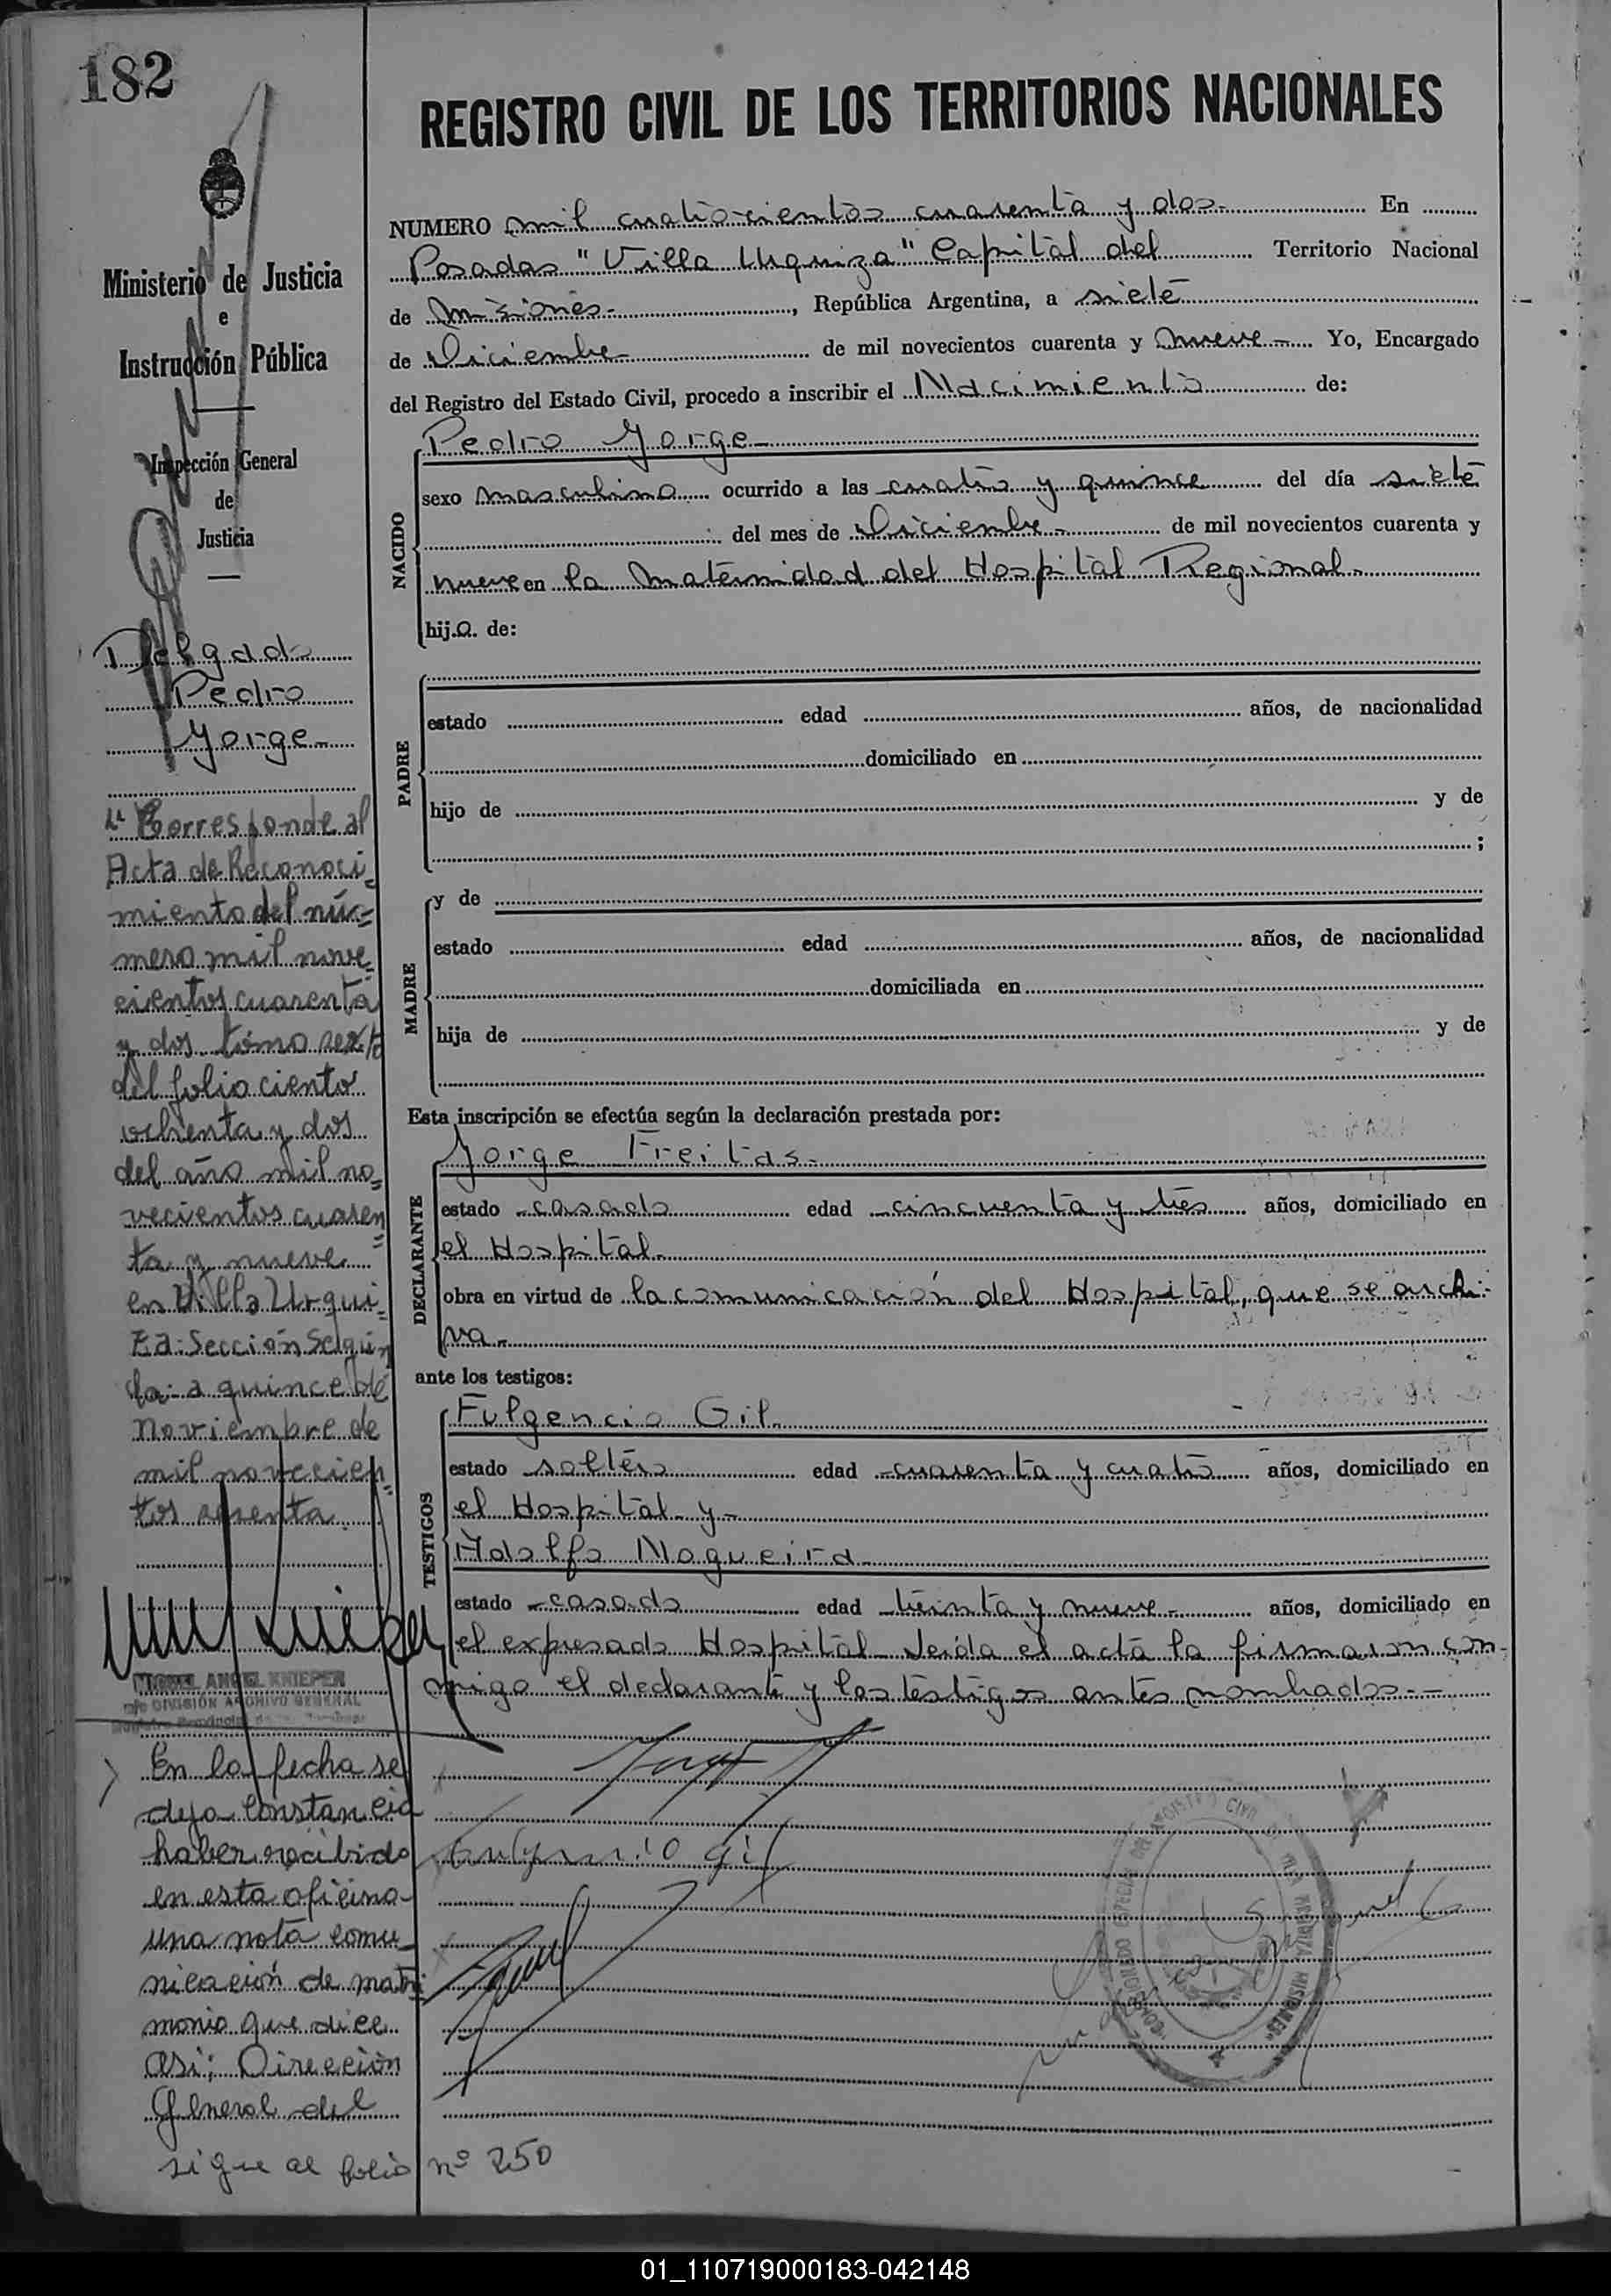 182
REGISTRO CIVIL DE LOS TERRITORIOS NACIONALES
Ministerio de Justicia
e
Instrucción Pública
Inspección General
de
Justicia
Delgado
Pedro
Jorge-
Corresponde al
Acta de Reconoci=
miento del nú=
mero mil nove=
cientos cuarenta
y dos tomo sexto
del folio ciento
ochenta y dos
del año mil no=
vecientos cuaren=
ta y nueve
en Villa Urqui=
za: Sección Segun
da: a quince de
noviembre de
mil novecien=
tos sesenta.
MIGUEL ANGEL KNIEPER
DIVISIÓN ARCHIVO GENERAL
En la fecha se
deja constancia
haber recibido
en esta oficina
una nota comu-
nicación de matri
monio que dice
así: Dirección
General del
sigue al folio nº 250
NUMERO mil cuatrocientos cuarenta y dos- En
Posadas "Villa Urquiza" Capital del Territorio Nacional
de Misiones-, República Argentina, a siete
de Diciembre de mil novecientos cuarenta y nueve- Yo, Encargado
del Registro del Estado Civil, procedo a inscribir el Nacimiento de:
Pedro Jorge-
NACIDO
sexo masculino ocurrido a las cuatro y quince del día siete
del mes de Diciembre- de mil novecientos cuarenta y
nueve en la Maternidad del Hospital Regional-
hijo. de:
PADRE
estado edad años, de nacionalidad
domiciliado en
hijo de y de
;
MADRE
y de
estado edad años, de nacionalidad
domiciliada en
hija de y de
Esta inscripción se efectúa según la declaración prestada por:
DECLARANTE
Jorge Freitas-
estado casado edad cincuenta y tres años, domiciliado en
el Hospital-
obra en virtud de la comunicación del Hospital, que se archi-
va-
ante los testigos:
TESTIGOS
Fulgencio Gil-
estado soltero edad cuarenta y cuatro años, domiciliado en
el Hospital y-
Adolfo Nogueira-
estado casado edad treinta y nueve- años, domiciliado en
el expresado Hospital Leída el acta la firmaron con-
migo el declarante y los testigos antes nombrados.-
Fulgencio Gil
01_110719000183-042148